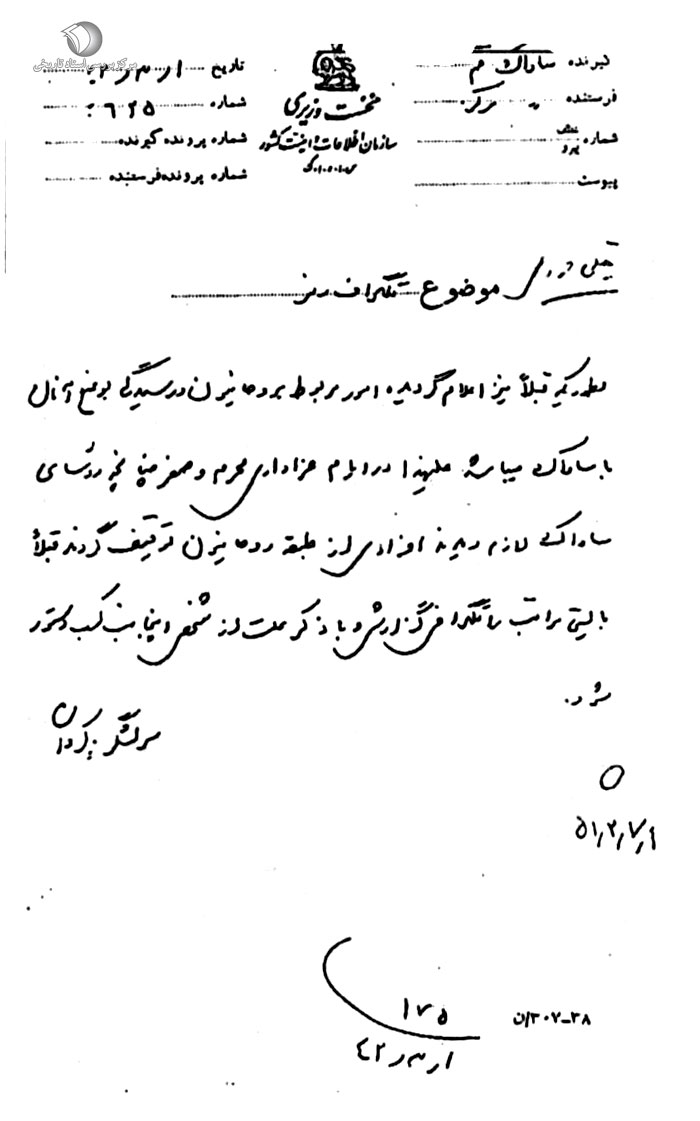 مرکز بررسی اسناد تاریخی
گیرنده ساواک قم
فرستنده مرکز
شماره
پیوست
نخست وزیری
سازمان اطلاعات و امنیت کشور
س.ا.و.ا.ک
تاریخ ۱ر۳ر۴۲
شماره ۶۲۵
شماره پرونده گیرنده
شماره پرونده فرستنده
خیلی فوری
موضوع تلگراف رمز
بطوریکه قبلاً نیز اعلام گردیده امور مربوط بروحانیون و رسیدگی بوضع آنان
با ساواک میباشد علیهذا در ایام عزاداری محرم و صفر چنانچه روسای
ساواک لازم دیدند افرادی از طبقه روحانیون توقیف گردند قبلاً
بایستی مراتب را تلگرافی گزارش و با ذکر علت از شخص اینجانب کسب دستور
شود.
سرلشگر پاکروان
۱۷۵
۱ر۳ر۴۲
۳۸-۳۰۷/ن